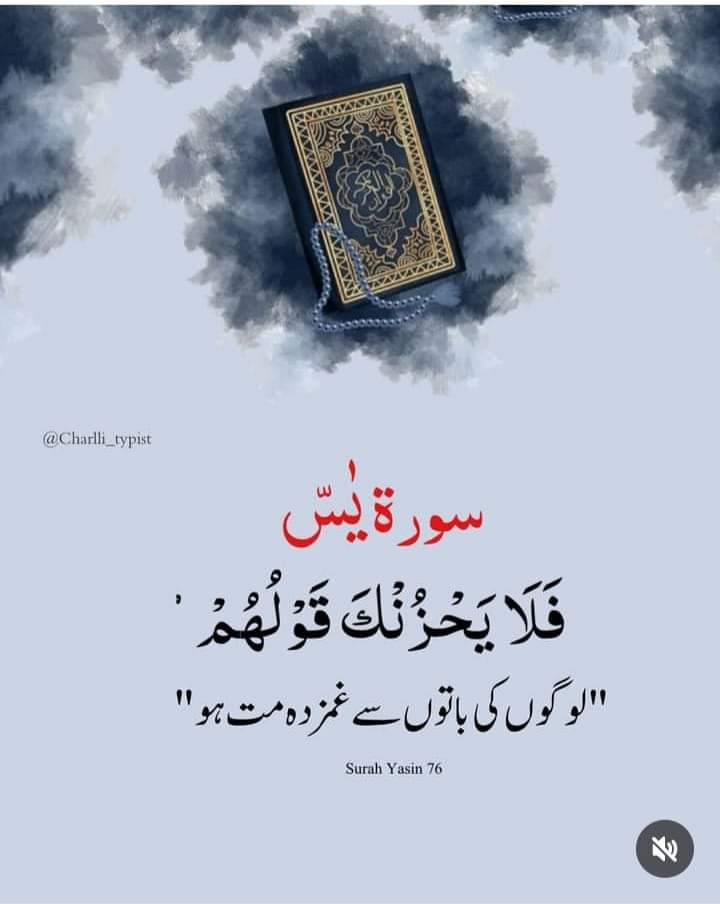 @Charlli_typist
سورة يٰسٓ
فَلَا يَحْزُنْكَ قَوْلُهُمْ ۘ
"لوگوں کی باتوں سے غمزدہ مت ہو"
Surah Yasin 76